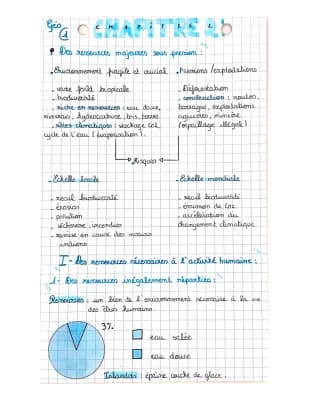 Géo
1
CHAPITRE 2:
Des ressources majeures sous pression :
. Environnement fragile et crucial
- vaste forêt tropicale
- biodiversité
- riche en ressources : eau douce,
minerais, hydrocarbure, bois, terres
- rôles climatiques : stockage CO2
cycle de l'eau (évaporation).
. Pressions / exploitations
- Déforestation
- construction : routes,
barrages, exploitations
agricoles, minière
(orpaillage illégal)
Risques
. Échelle locale
- recul biodiversité
- érosion
- pollution
- sécheresse, incendies
- remise en cause des modes
indiens
. Échelle mondiale
- recul biodiversité
- émission de CO2
- accélération du
changement climatique
I - Des ressources nécessaires à l'activité humaine :
1 - Des ressources inégalement réparties :
Ressources : un bien de l'environnement nécessaire à la vie
des êtres humains.
3%
eau salée
eau douce
Inlandsis : épaisse couche de glace.